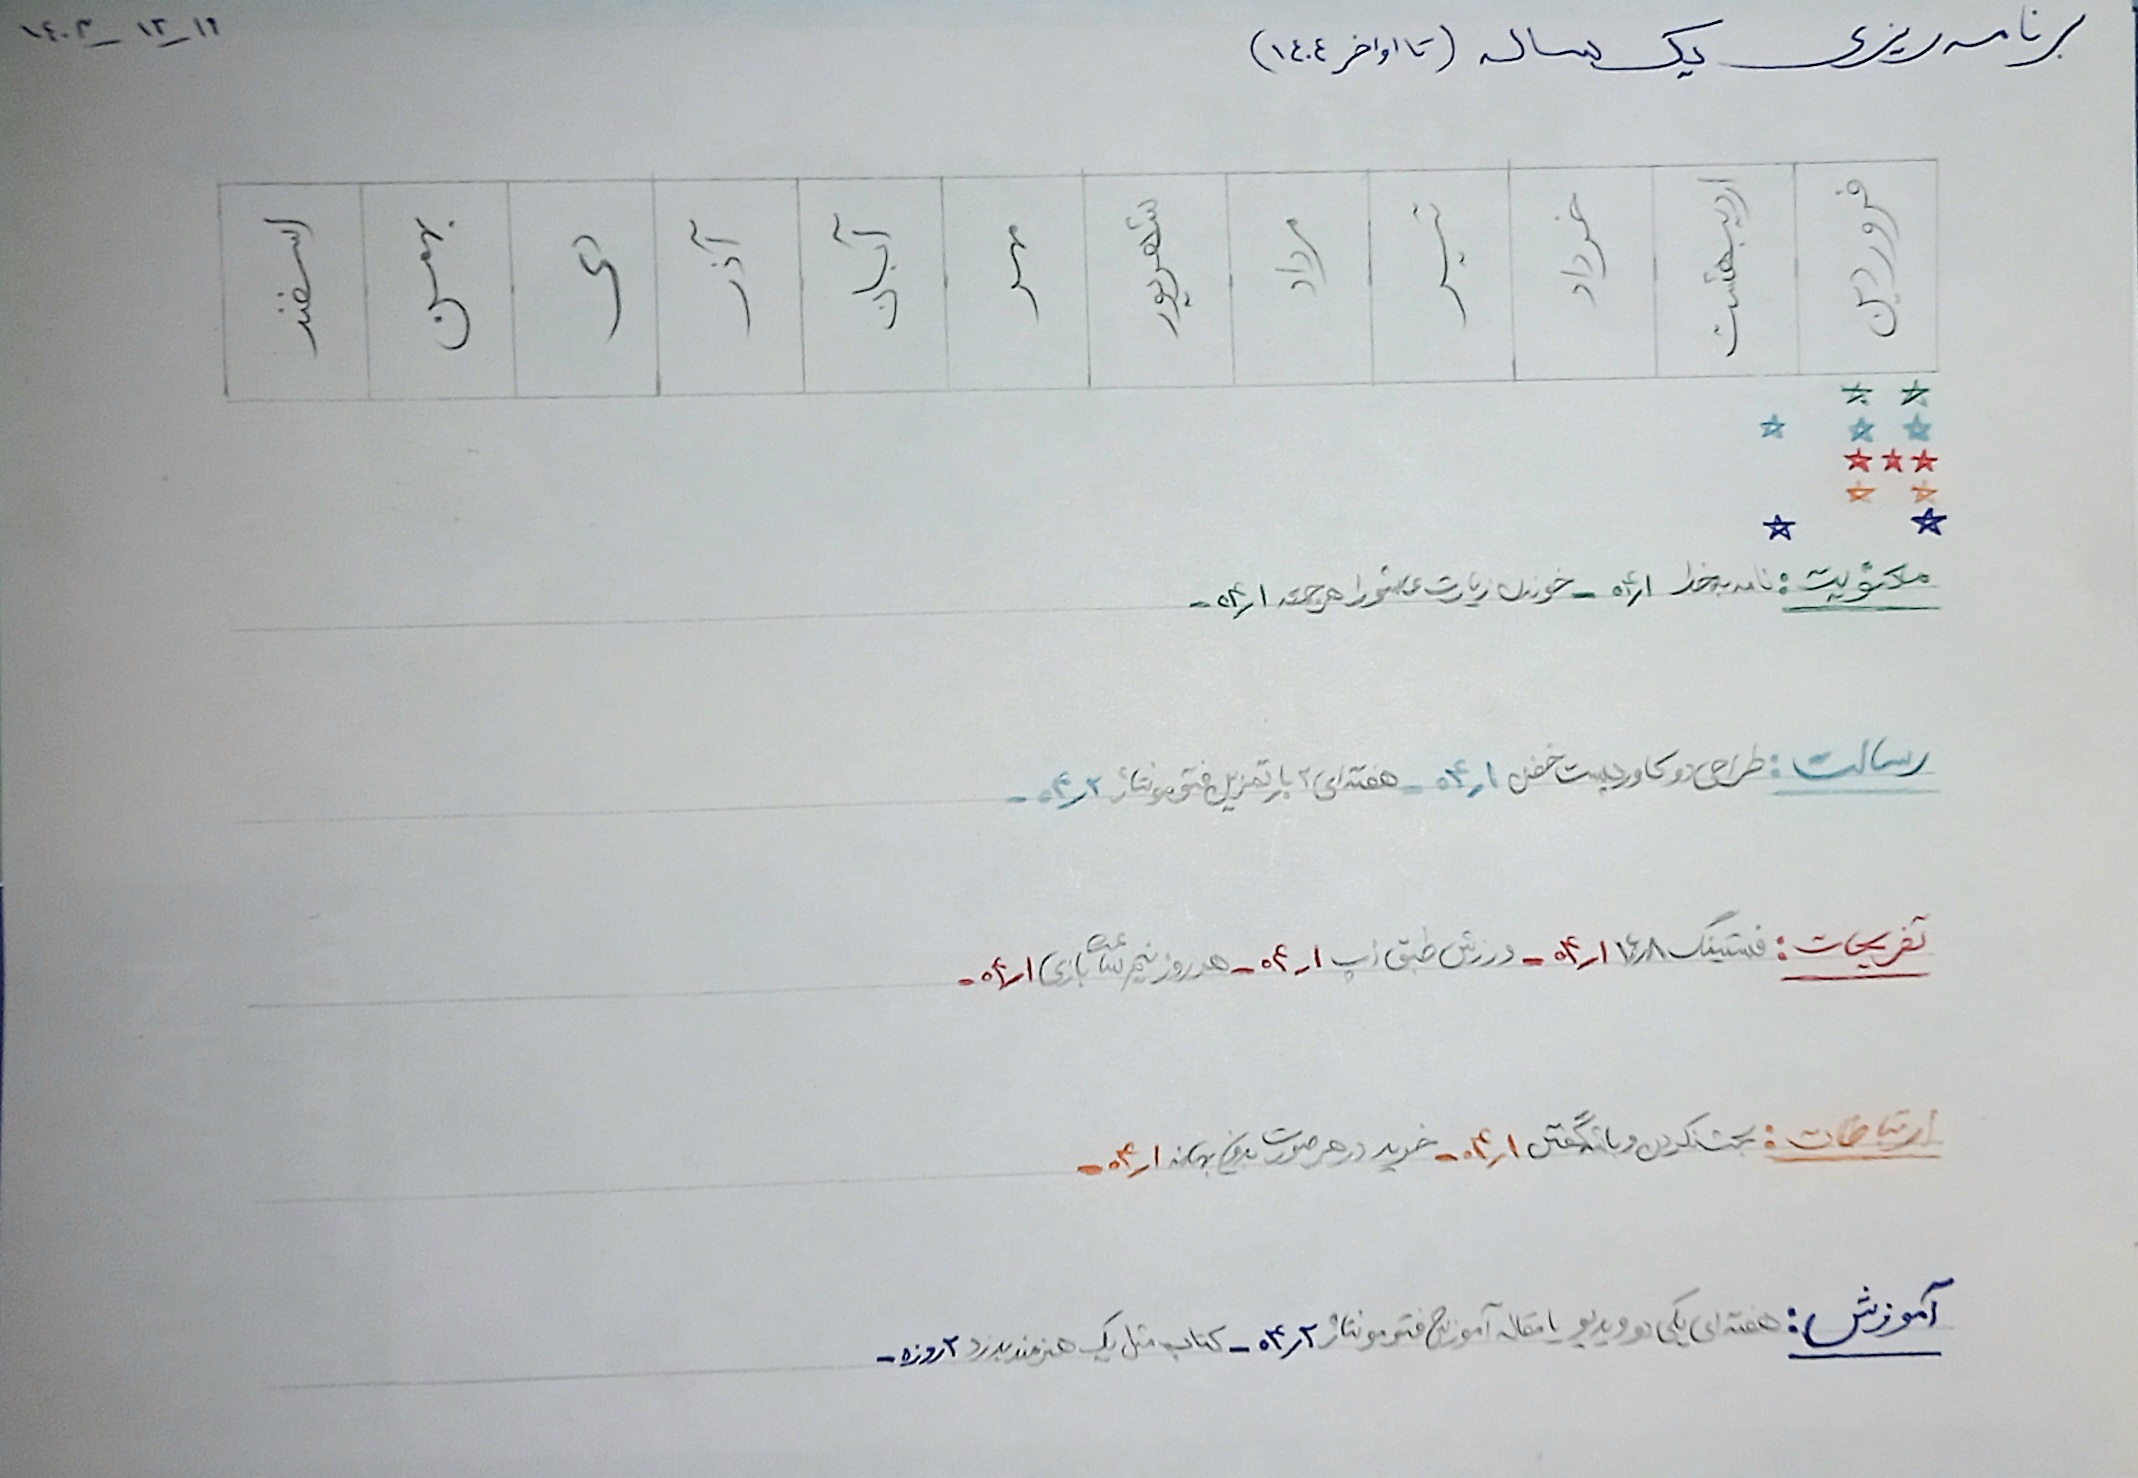 برنامه ریزی یک ساله (تا اواخر ١٤٠٤)
١٤٠٣ – ١٢ – ١٩
فروردین اردیبهشت خرداد تیر مرداد شهریور مهر آبان آذر دی بهمن اسفند
معنویت: نامه به خدا ۱ر۰۴ – خوندن زیارت عاشورا هر جمعه ۱ر۰۴ –
رسالت: طراحی دو کاور پست خفن ۱ر۰۴ – هفته‌ای ۲ بار تمرین فتومونتاژ ۲ر۰۴ –
تفریحات: فستینگ ۱۶ر۸ ۱ر۰۴ – ورزش طبق اپ ۱ر۰۴ – هر روز نیم ساعت بازی ۱ر۰۴ –
ارتباطات: بحث نکردن و باشه گفتن ۱ر۰۴ – خرید در هر صورت بدون بهانه ۱ر۰۴ –
آموزش: هفته‌ای یکی دو ویدیو یا مقاله آموزش فتومونتاژ ۲ر۰۴ – کتاب مثل یک هنرمند بدزد ۲ روزه –